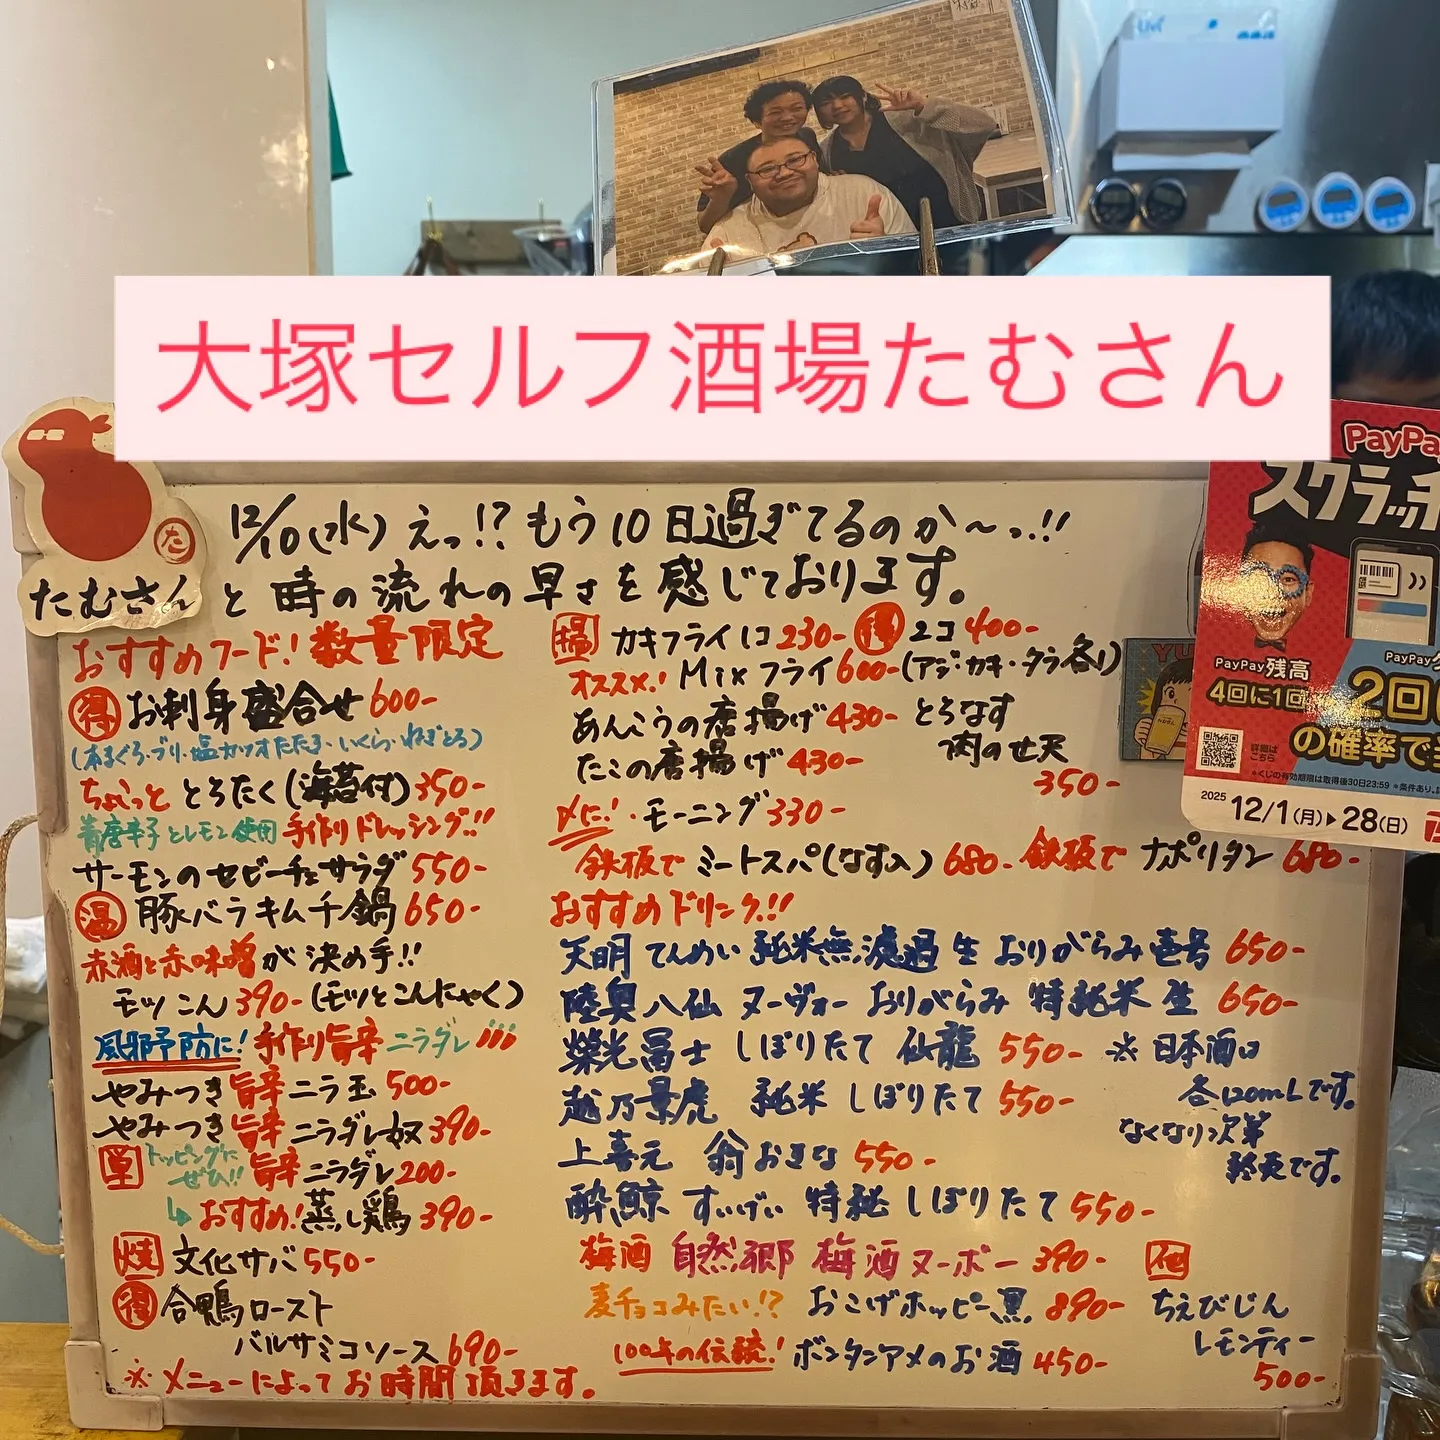 大塚セルフ酒場たむさん
た
たむさん
12/10(水) えっ!?もう10日過ぎてるのか〜っ!!
と時の流れの早さを感じております。
おすすめフード!数量限定
得 お刺身盛合せ 600-
(本まぐろ・ブリ・塩カツオたたき・いくら・ねぎとろ)
ちょいっと とろたく(海苔付) 350-
青唐辛子とレモン使用 手作りドレッシング!!
サーモンのセビーチェサラダ 550-
温 豚バラキムチ鍋 650-
赤酒と赤味噌が決め手!!
モツこん 390-(モツとこんにゃく)
風邪予防に!手作り旨辛ニラダレ!!!
やみつき旨辛ニラ玉 500-
やみつき旨辛ニラダレ奴 390-
単 トッピングに ぜひ!! 旨辛ニラダレ 200-
↳おすすめ!蒸し鶏 390-
焼 文化サバ 550-
得 合鴨ロースト
バルサミコソース 690-
※メニューによってお時間頂きます。
揚 カキフライ1コ 230- 得 2コ 400-
オススメ! Mixフライ 600-(アジ・カキ・タラ各1)
あんこうの唐揚げ 430-
たこの唐揚げ 430-
とろなす
肉のせ天
350-
〆に!・モーニング 330-
鉄板で ミートスパ(なす入) 680- 鉄板で ナポリタン 680-
おすすめドリンク!!
天明 てんめい 純米無濾過生 おりがらみ壱号 650-
陸奥八仙 ヌーヴォー おりがらみ 特純米 生 650-
榮光冨士 しぼりたて 仙龍 550-
越乃景虎 純米 しぼりたて 550-
上喜元 翁おきな 550-
酔鯨 すいげい 特純 しぼりたて 550-
※日本酒は
各120mLです。
なくなり次第
終売です。
梅酒 自然郷 梅酒ヌーボー 390-
麦チョコみたい!? おこげホッピー黒 890-
100年の伝統! ボンタンアメのお酒 450-
他
ちえびじん
レモンティー
500-
PayPa
スクラッチ
PayPay残高
4回に1回
PayPay
2回
の確率で
詳細は
こちら
*くじの有効期限は取得後30日23:59 *条件あり。
2025 12/1(月)▶28(日)
YU